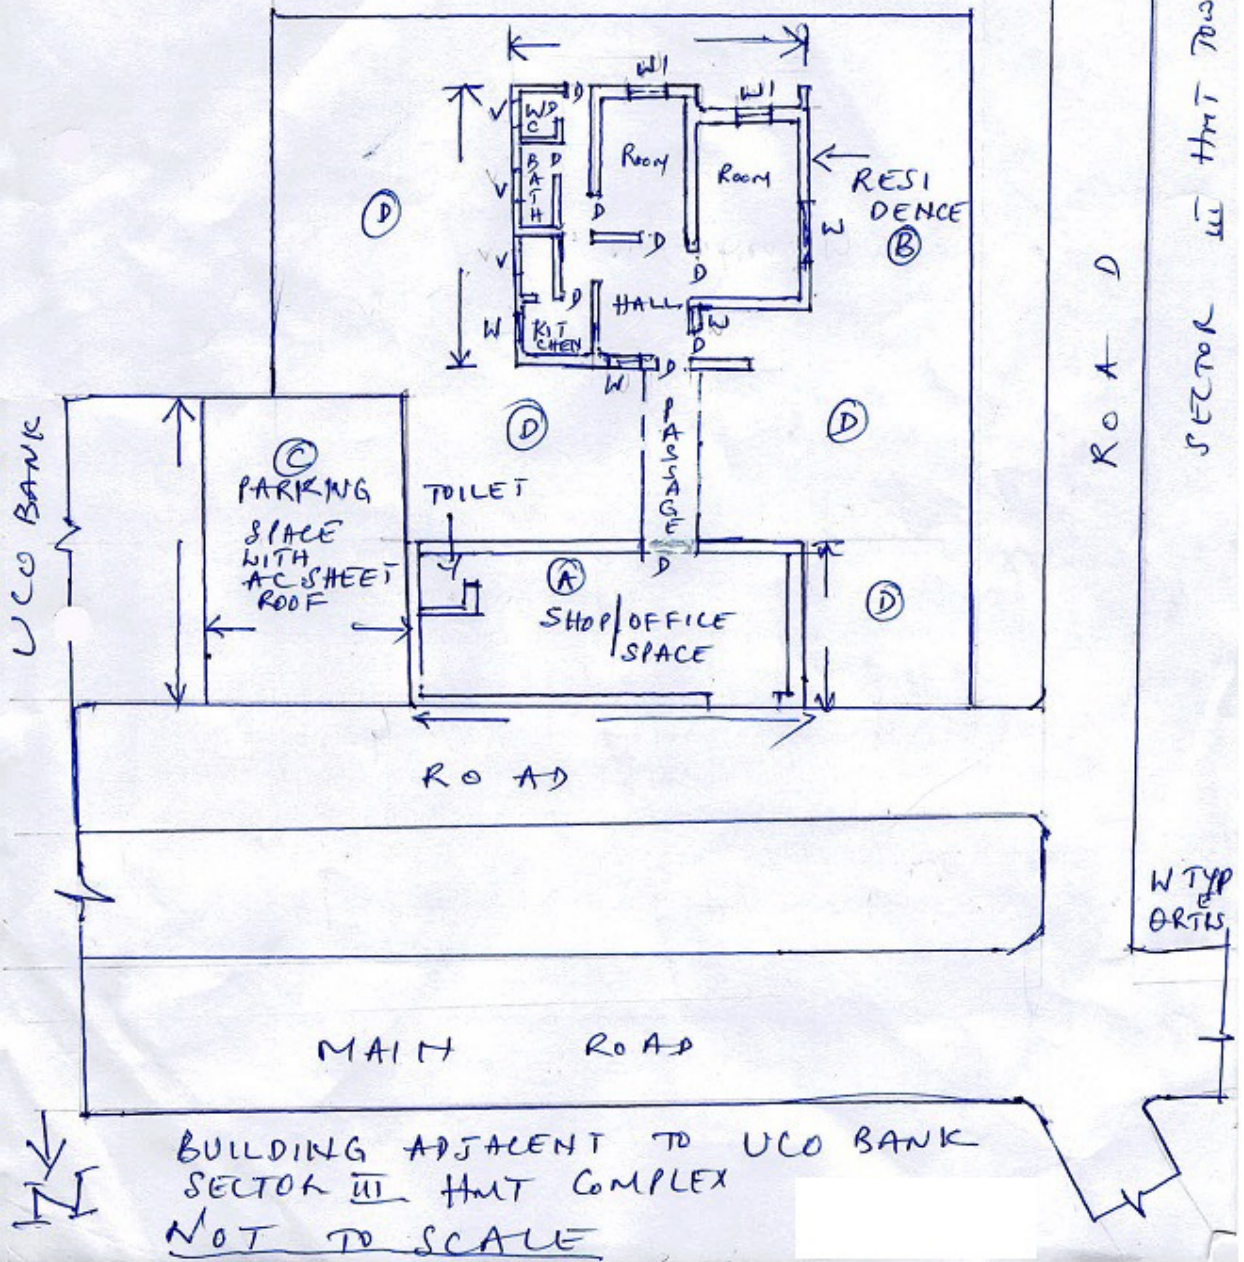 W1
W1
D
V
WC
D
BATH
D
V
Room
Room
RESI
DENCE
Ⓑ
W
Ⓓ
D
D
D
V
D
HALL
W
KIT
CHEN
W
D
W
D
Ⓓ
Ⓓ
PASSAGE
UCO BANK
Ⓒ
PARKING
SPACE
WITH
AC SHEET
ROOF
TOILET
D
Ⓐ
SHOP/OFFICE
SPACE
Ⓓ
ROAD
SECTOR III HMT TOW
ROAD
W TYP
E
QRTRS
MAIN ROAD
N
BUILDING ADJACENT TO UCO BANK
SECTOR III HMT COMPLEX
NOT TO SCALE